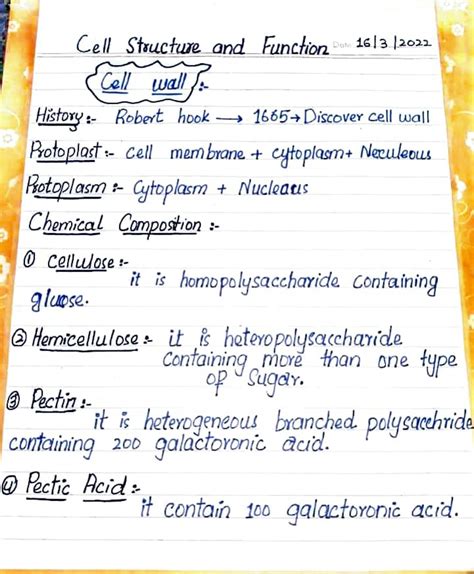 Cell Structure and Function Date 16/3/2022
Cell wall :-
History :- Robert hook → 1665 → Discover cell wall
Protoplast :- cell membrane + cytoplasm + Neculeous
Protoplasm :- Cytoplasm + Nucleaus
Chemical Composition :-
① Cellulose :-
it is homopolysaccharide containing
gluose.
② Hemicellulose :- it is heteropolysaccharide
containing more than one type
of Sugar.
③ Pectin :-
it is heterogeneous branched polysacchride
containing 200 galactoronic acid.
④ Pectic Acid :-
it contain 100 galactoronic acid.